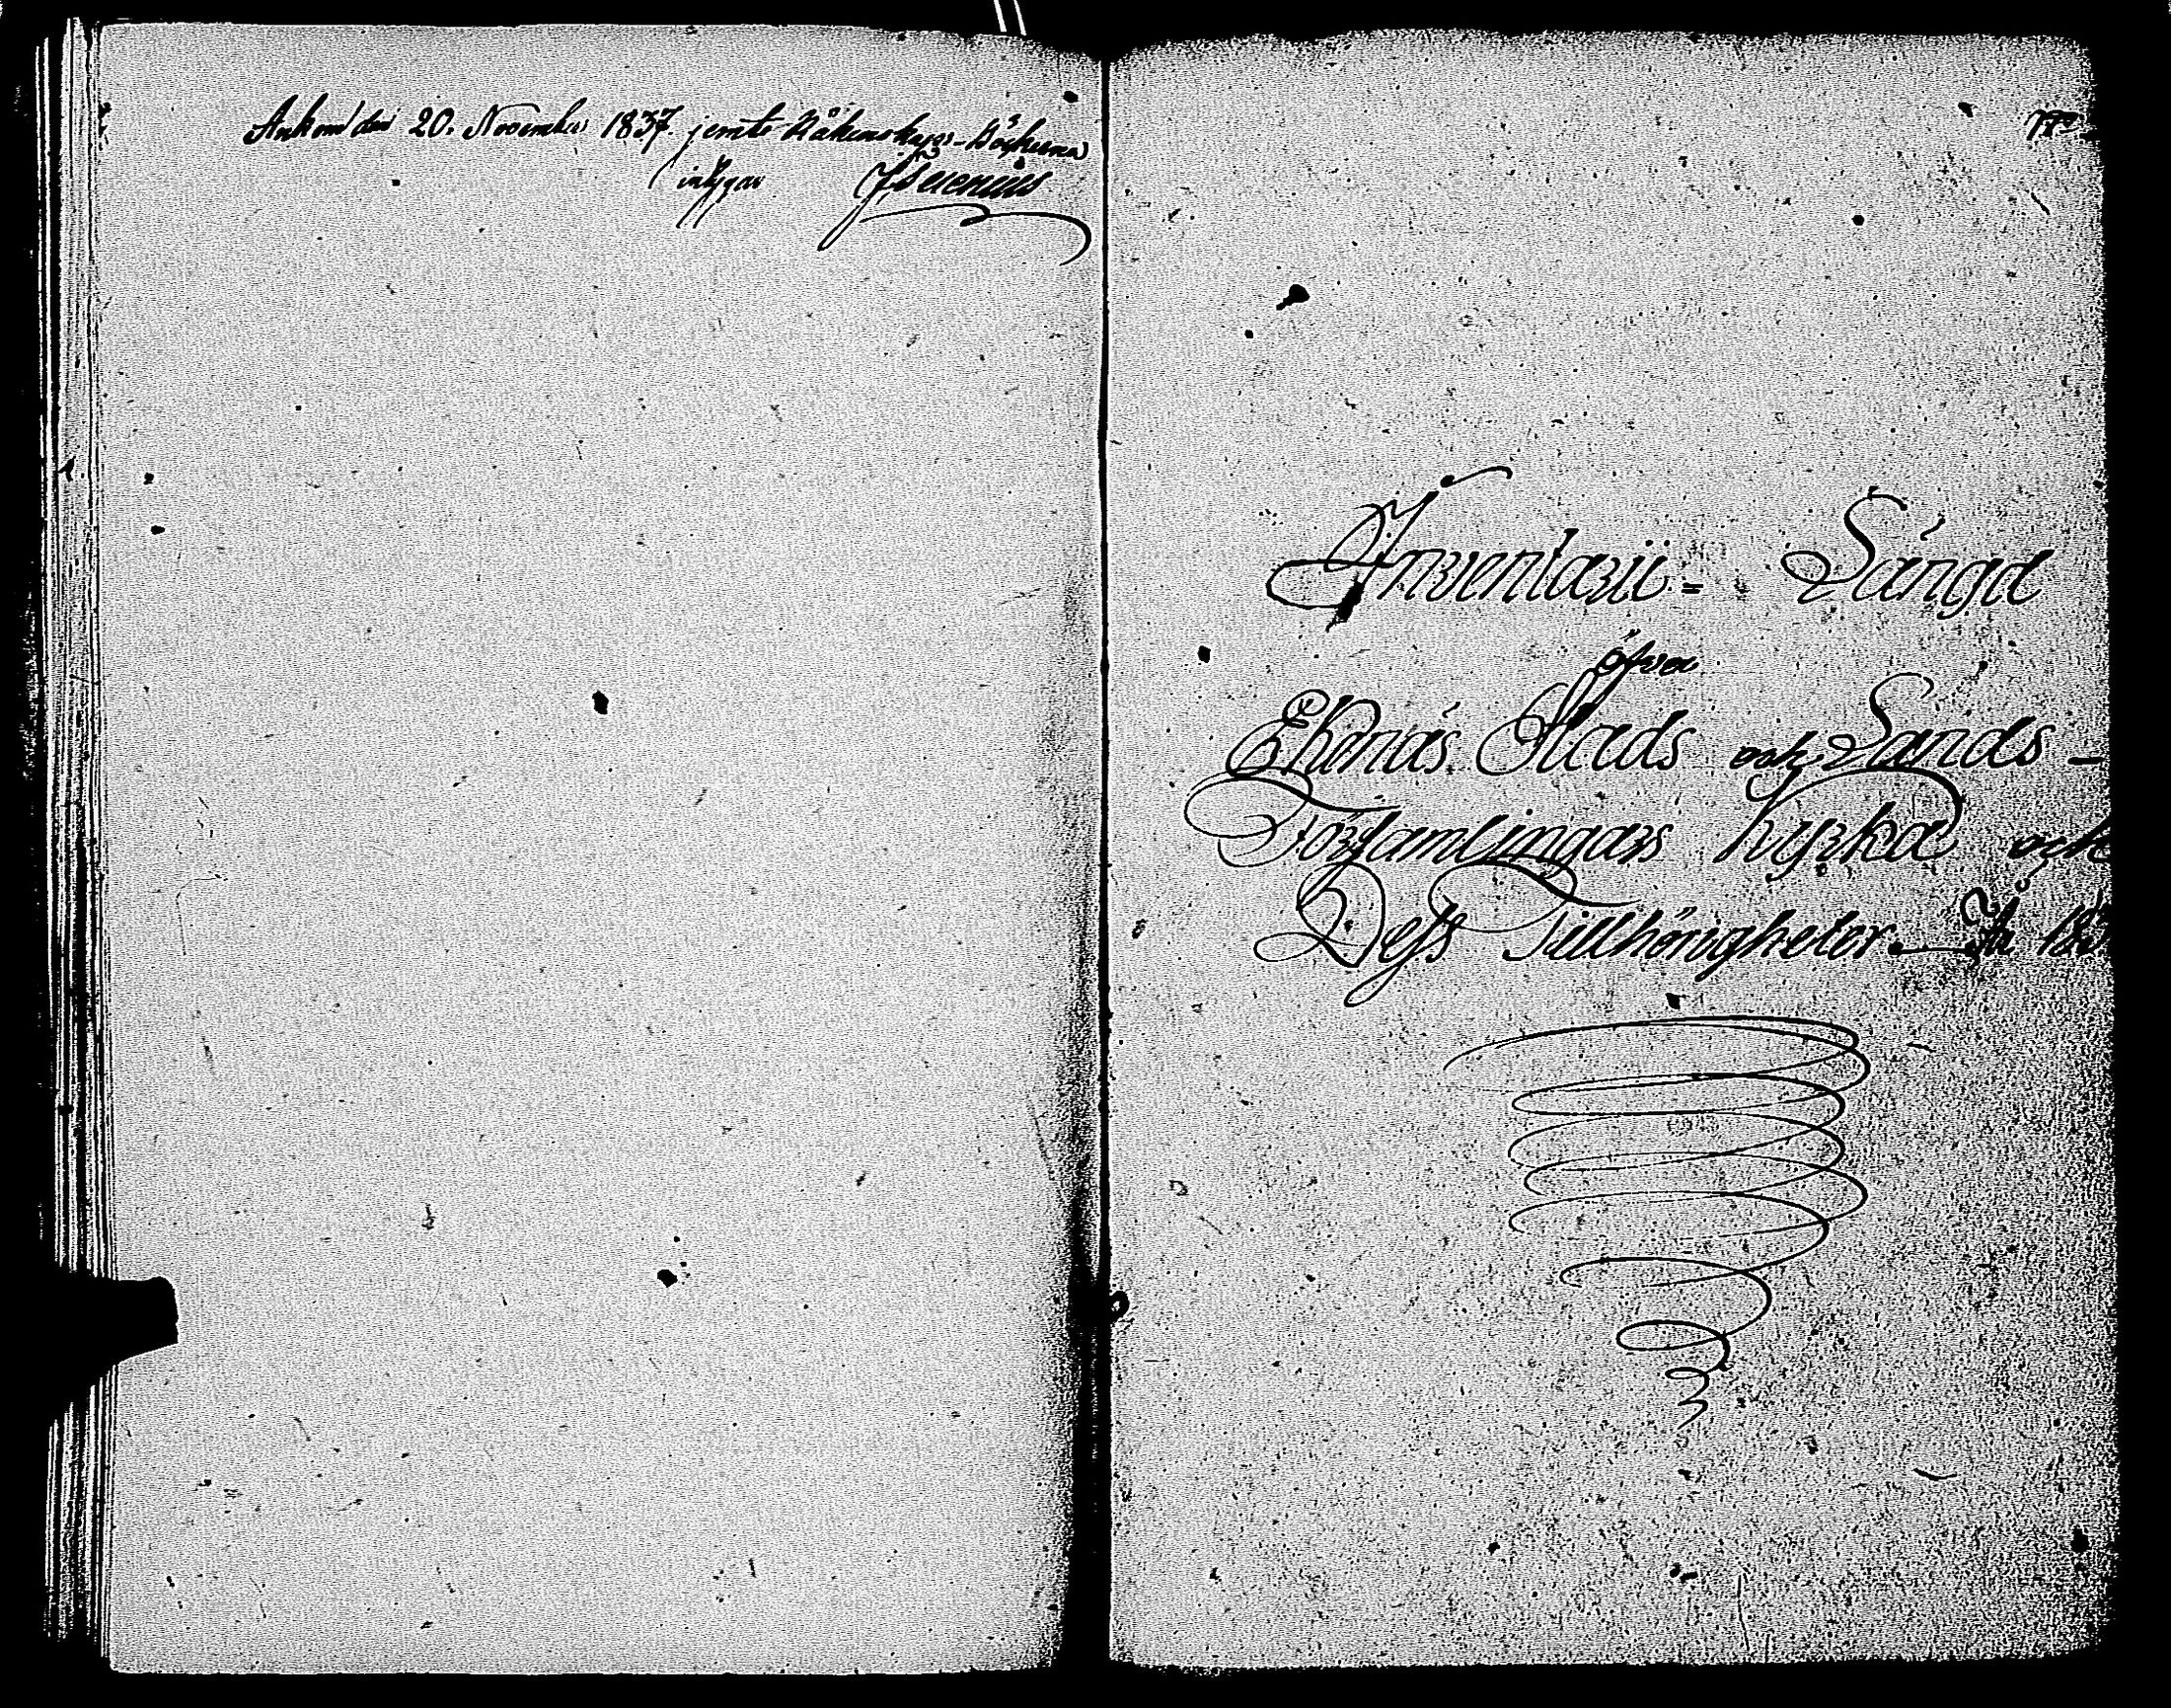 Ankom den 20. November 1837. jemte Räkenskaps-Böckerna
intygar
Inventarii= Längd
öfver
Ekenäs Stads och Lands-
Församlingars Kyrka och
Dess Tillhörigheter. År